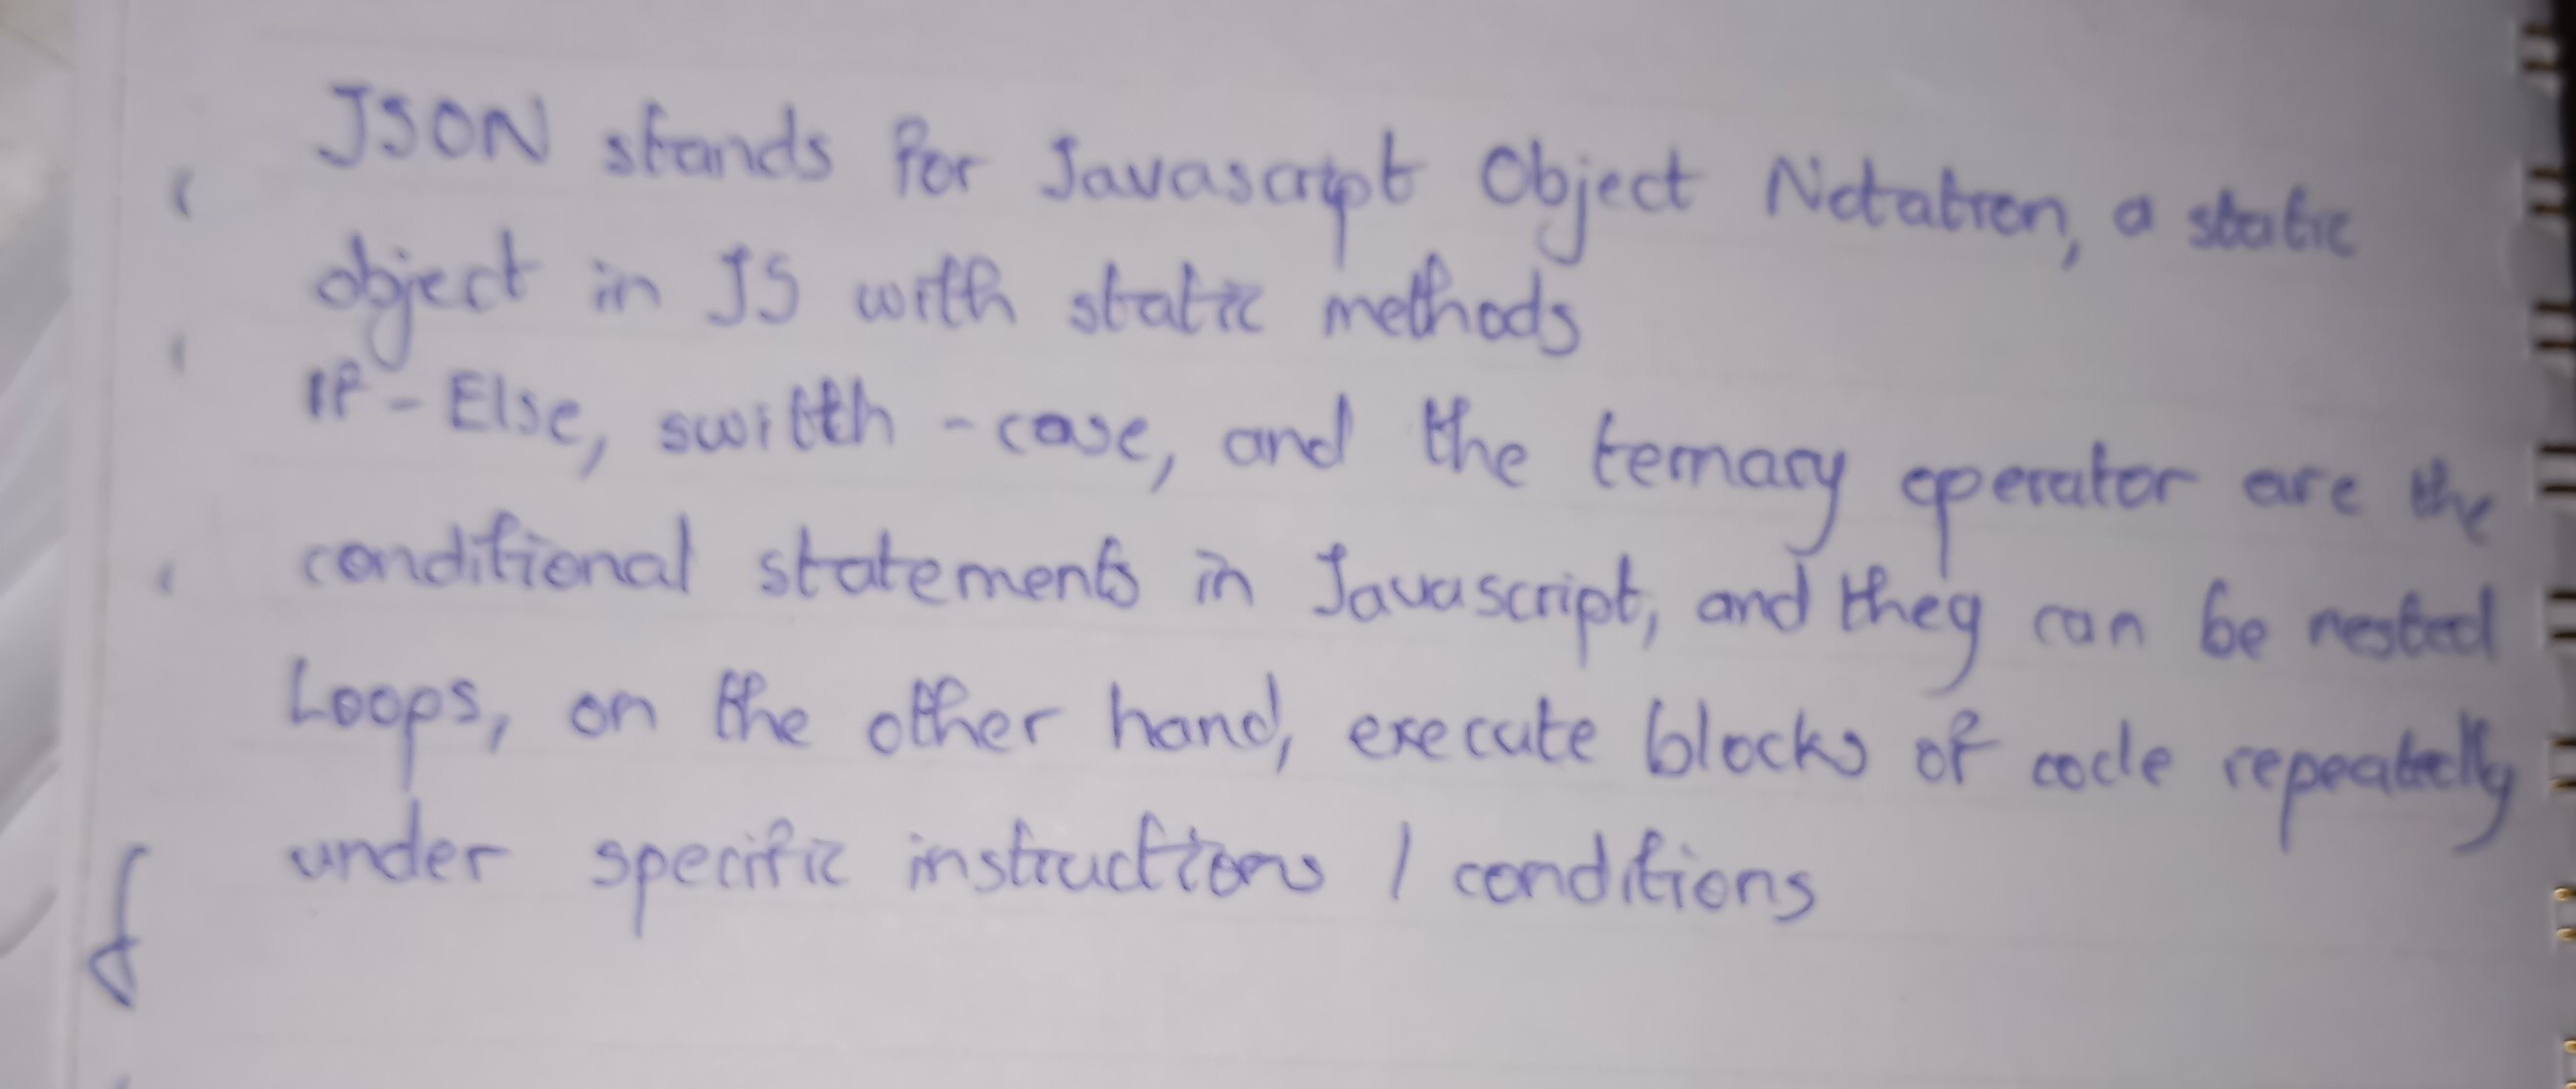 JSON stands for Javascript Object Notation, a static
object in JS with static methods
If - Else, switth - case, and the ternary operator are the
conditional statements in Javascript, and they can be nested
Loops, on the other hand, execute blocks of code repeatedly
under specific instructions / conditions